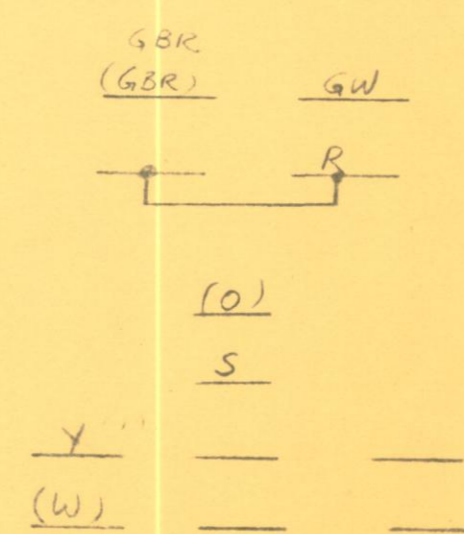 GBR
(GBR) GW
R
(O)
S
Y
(W)